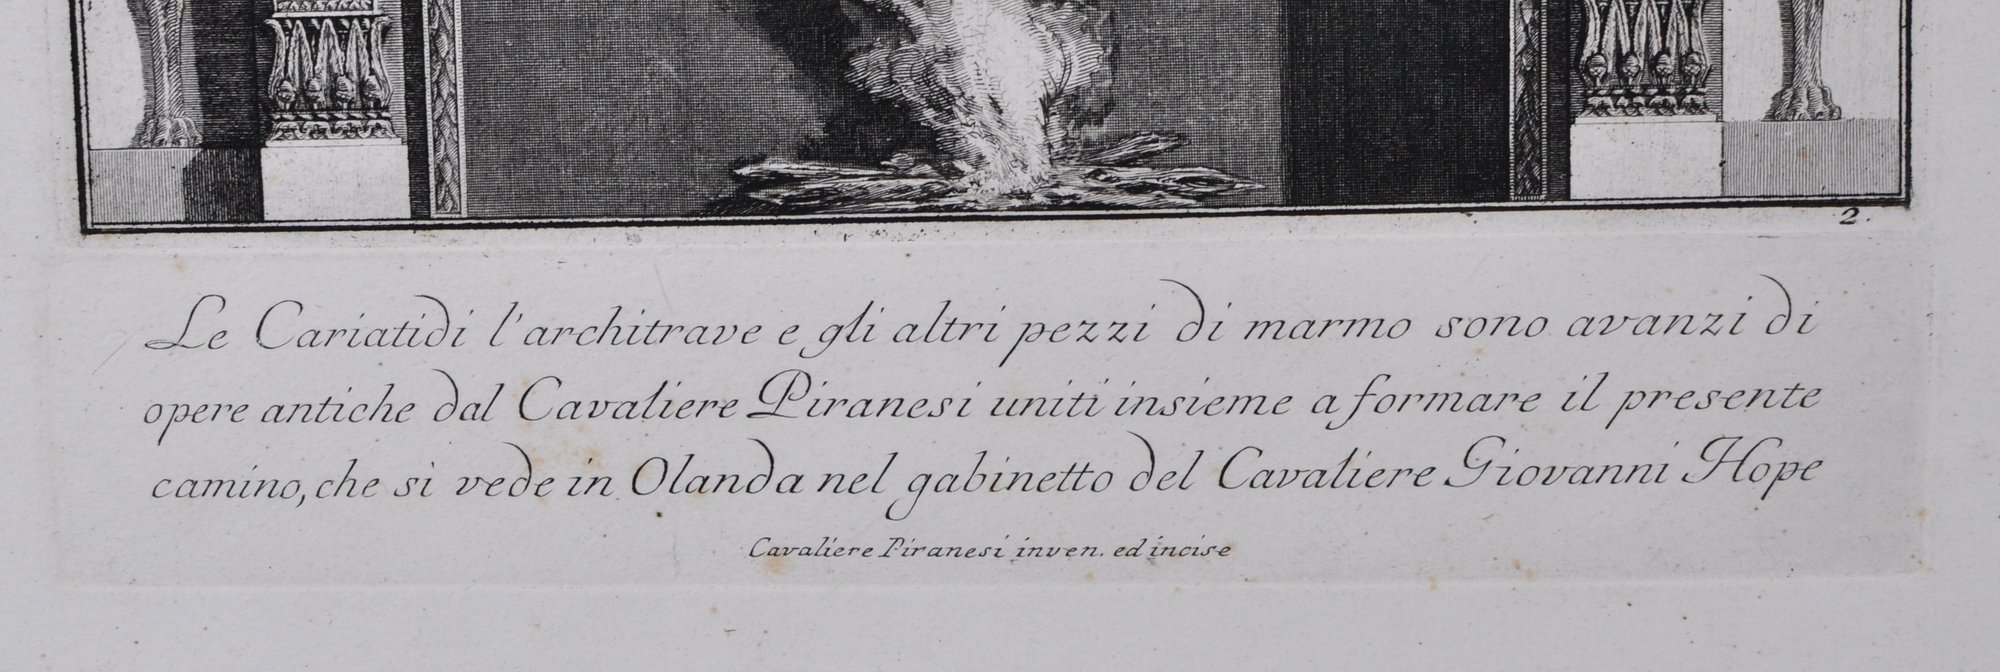 2.
Le Cariatidi l'architrave e gli altri pezzi di marmo sono avanzi di
opere antiche dal Cavaliere Piranesi uniti insieme a formare il presente
camino, che si vede in Olanda nel gabinetto del Cavaliere Giovanni Hope
Cavaliere Piranesi inven. ed incise